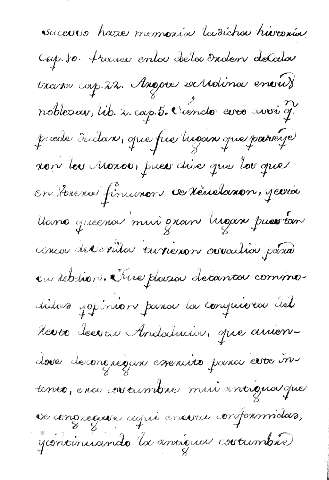 sucesso haze memoria la dicha historia
cap. 10. trata en la de la Orden de Cala
trava cap. 22. Argote de Molina en su
nobleza, lib. 2. cap. 5. Siendo esto assi q̃
puede dudar, que fue lugar que
ron los Moros, pues dize que los que
en Porcuna se rebelaron, y esta
llano que era mui gran lugar pues tan
cerca de tuvieron ossadia para
su rebelion. Fue plaza de tanta commo-
didad y opinion para la conquista del
resto de esta Andalucia, que avien-
dose de congregar exercito para este in-
tento, era costumbre mui antigua que
se congregue aqui en cuia conformidad,
y continuando la antigua costumbre